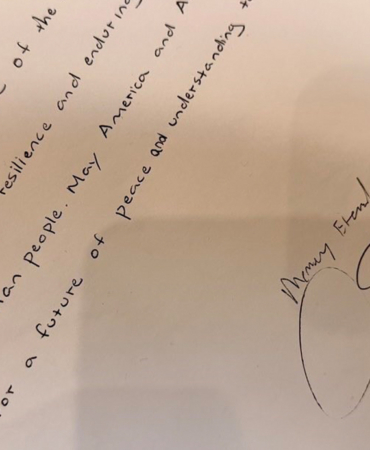 of the
resilience and enduring
People. May America and A
or a future of peace and understanding t
Memory Eternal